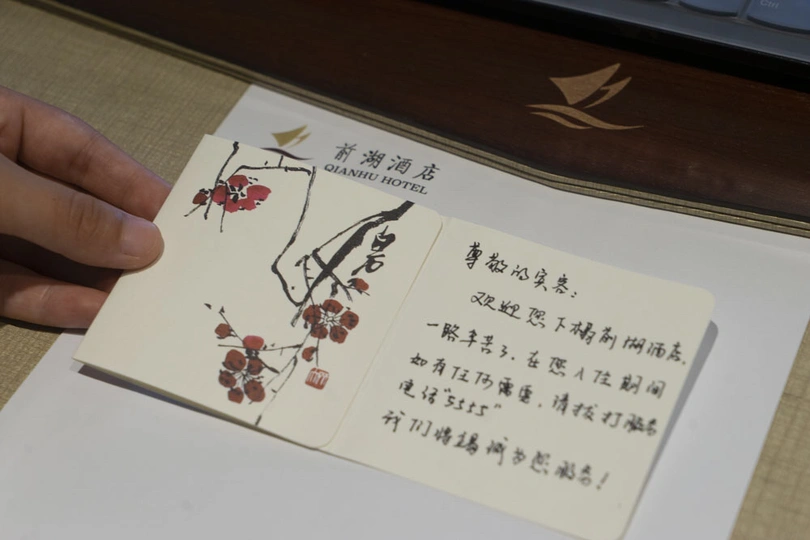 前湖酒店
QIANHU HOTEL
白石
尊敬的宾客：
欢迎您下榻前湖酒店，
一路辛苦了，在您入住期间
如有任何需要，请拨打服务
电话"5555"
我们将竭诚为您服务！